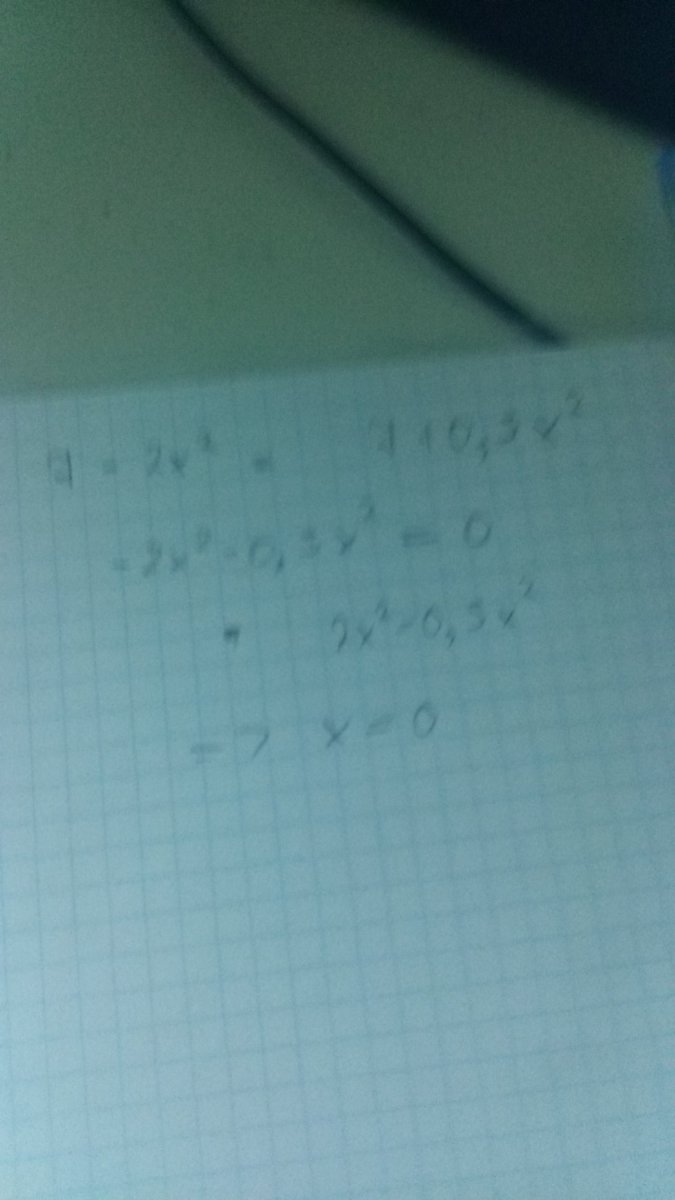 1 - 2x² = 1 + 0,5x²
-2x² - 0,5x² = 0
2x² - 0,5x²
=> x = 0